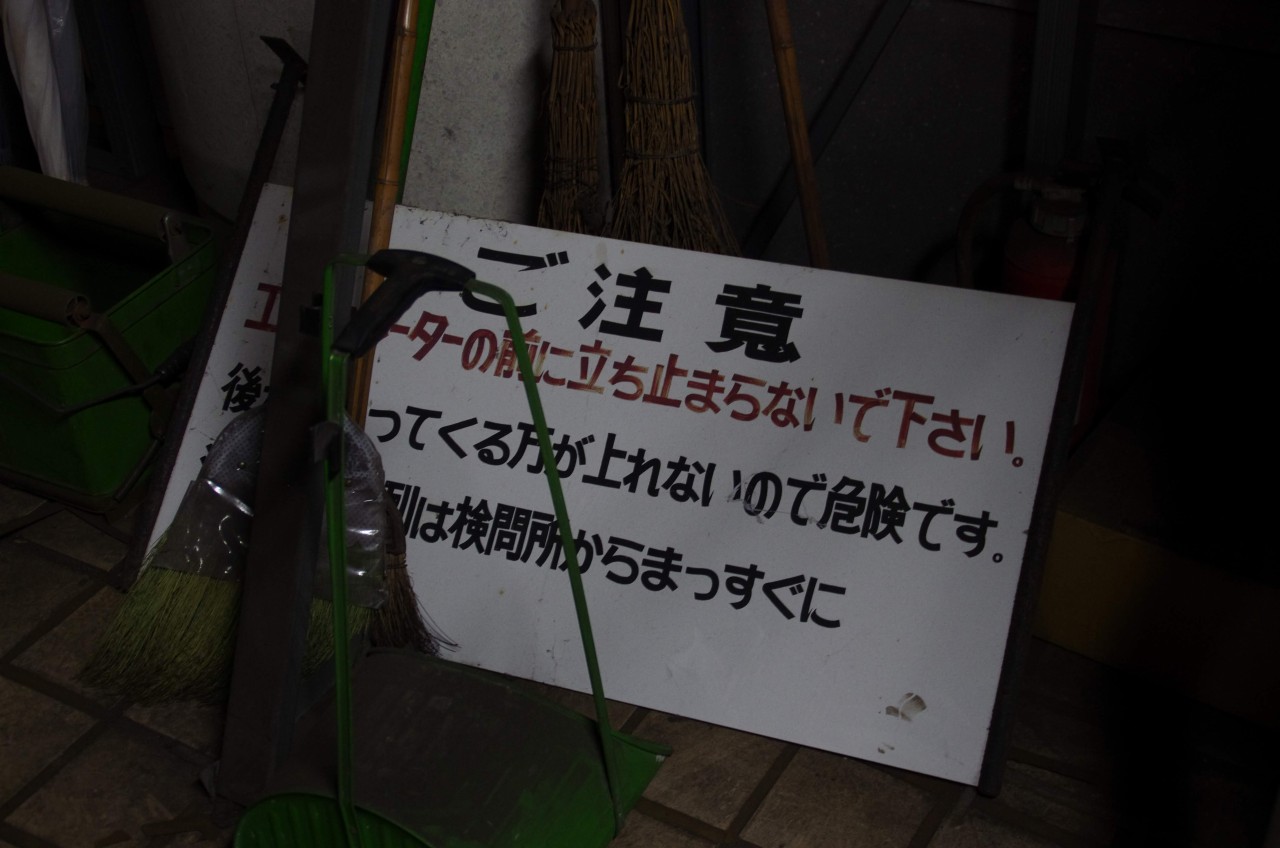 ご注意
ーターの前に立ち止まらないで下さい。
後 ってくる方が上れないので危険です。
列は検問所からまっすぐに